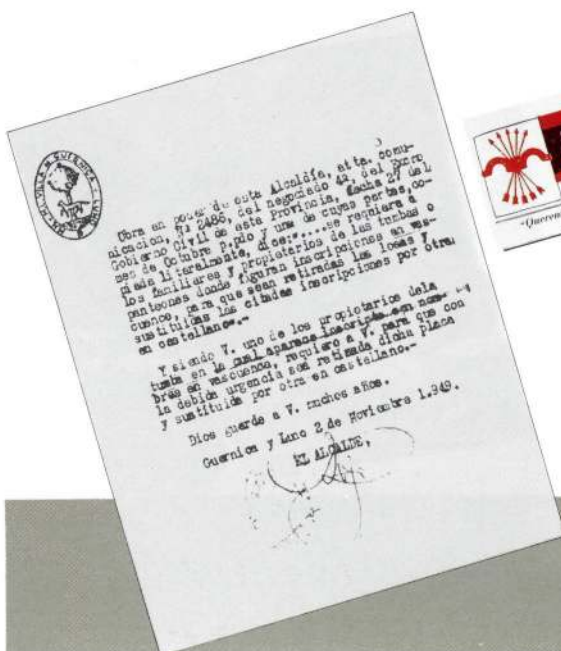 Obra en poder de esta Alcaldía, atta. comu-
nicacion, Nº 2486, del negociado 4º, del Excmo
Gobierno Civil de esta Provincia, fecha 27 del
mes de Octubre p.pdo y una de cuyas partes, co-
piada literalmente, dice:.....se requiera a
los familiares y propietarios de las tumbas o
panteones donde figuran inscripciones en vas-
cuence, para que sean retiradas las losas y
sustituidas las citadas inscripciones por otra
en castellano.-
Y siendo V. uno de los propietarios dela
tumba en la cual aparece inscripto con nom-
bres en vascuence, requiero a V. para que con
la debida urgencia sea retirada dicha placa
y sustituida por otra en castellano.-
Dios guarde a V. muchos años.
Guernica y Luno 2 de Noviembre 1.949.
EL ALCALDE,